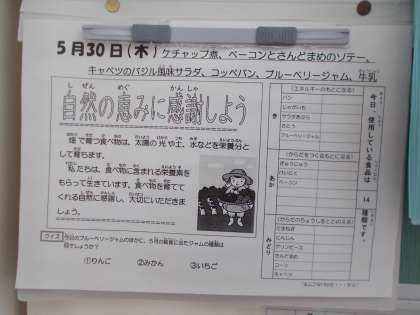 5月30日(木)ケチャップ煮、ベーコンとさんどまめのソテー、
キャベツのバジル風味サラダ、コッペパン、ブルーベリージャム、牛乳
自然の恵みに感謝しよう
畑で育つ食べ物は、太陽の光や土、水などを栄養分と
して育ちます。
私たちは、食べ物に含まれる栄養素を
もらって生きています。食べ物を育てて
くれる自然に感謝し、大切にいただきま
しょう。
クイズ 今日のブルーベリージャムのほかに、5月の給食に出たジャムの種類は
何でしょうか?
①りんご ②みかん ③いちご
今日、使用している食品は 14 種類です。
き
(エネルギーのもとになる)
パン
じゃがいも
サラダあぶら
さとう
ブルーベリージャム
あか
(からだをつくるもとになる)
ぎゅうにゅう
けいにく
ベーコン
みどり
(からだのちょうしをととのえる)
たまねぎ
にんじん
グリンピース
さんどまめ
コーン
キャベツ